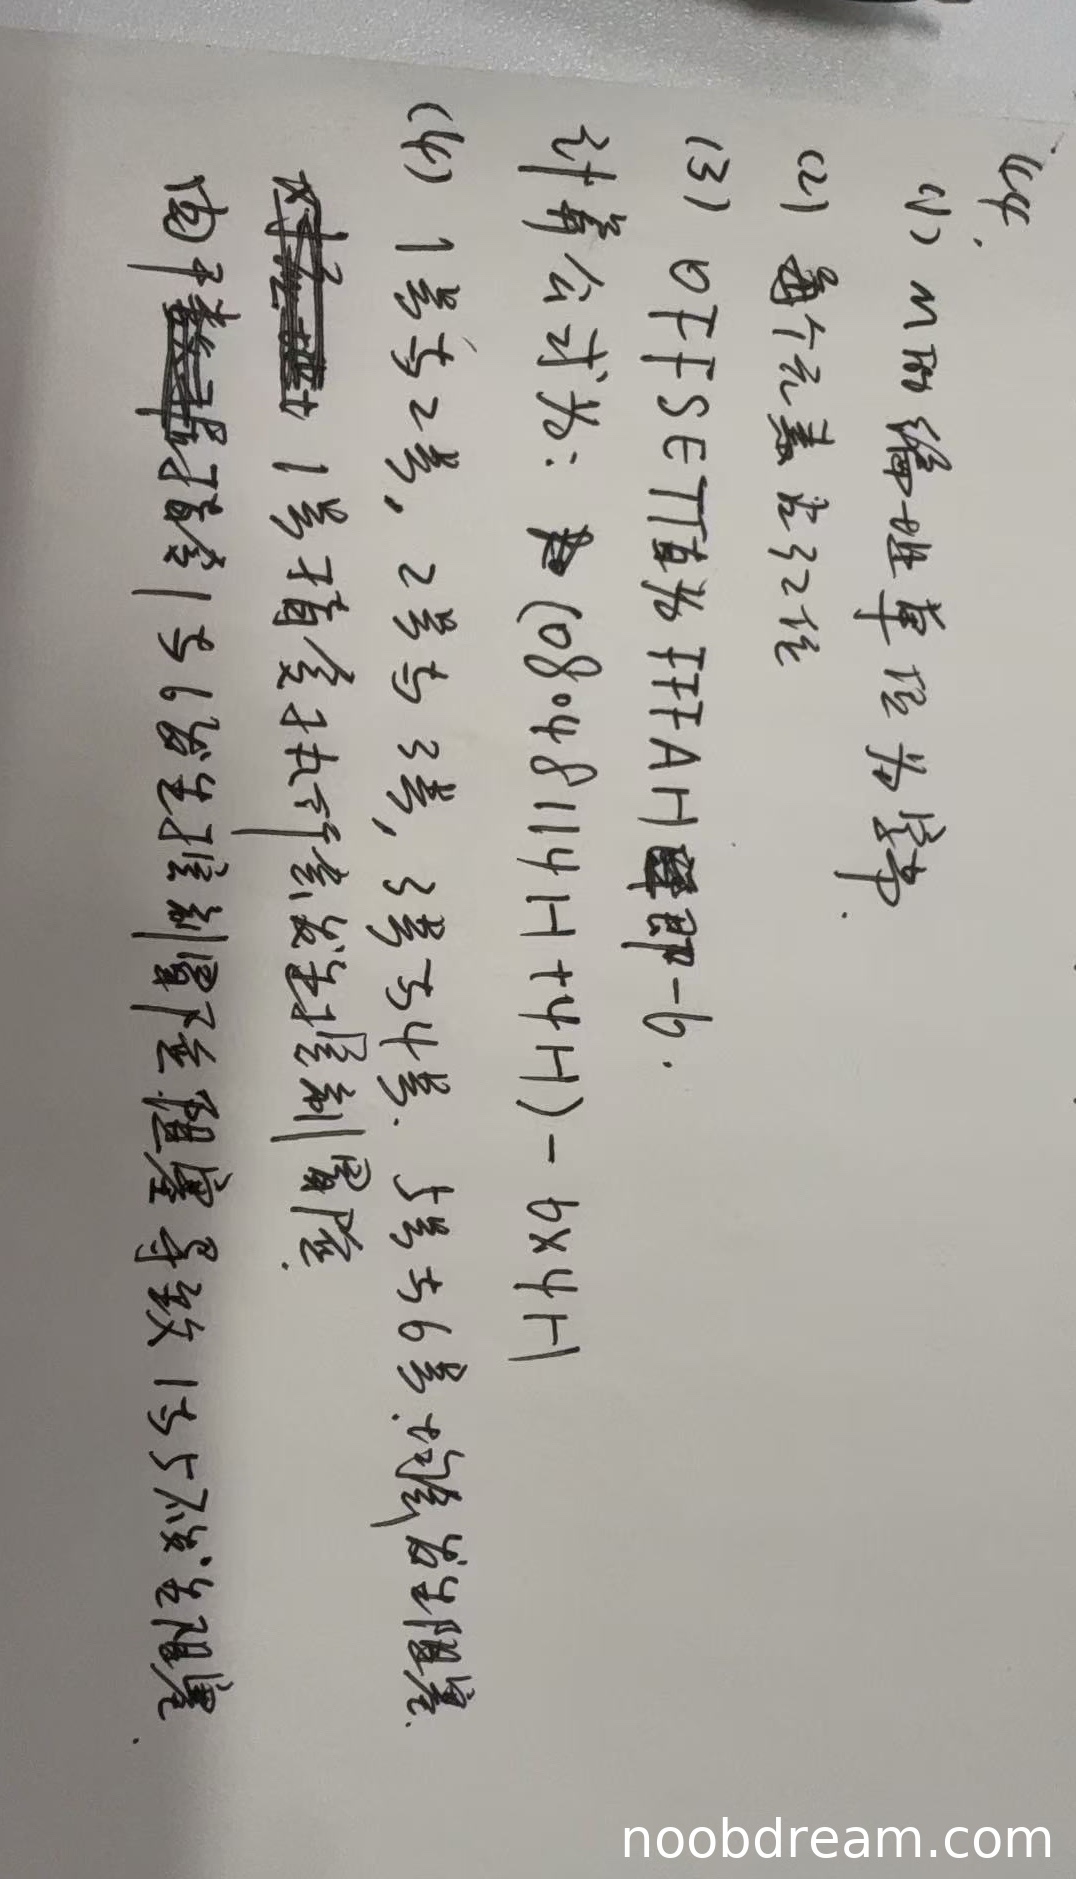 44.
(1) M的编址单位为字节.
(2) 每个元素占32位
(3) OFFSET值为FFFAH即-6.
计算公式为: (08048114H+4H)-6×4H
(4) 1号与2号, 2号与3号, 3号与4号. 5号与6号. 均会发生阻塞.
1号指令执行会发生控制冒险.
由于指令1与6发生控制冒险.阻塞导致1与5不发生阻塞.
noobdream.com